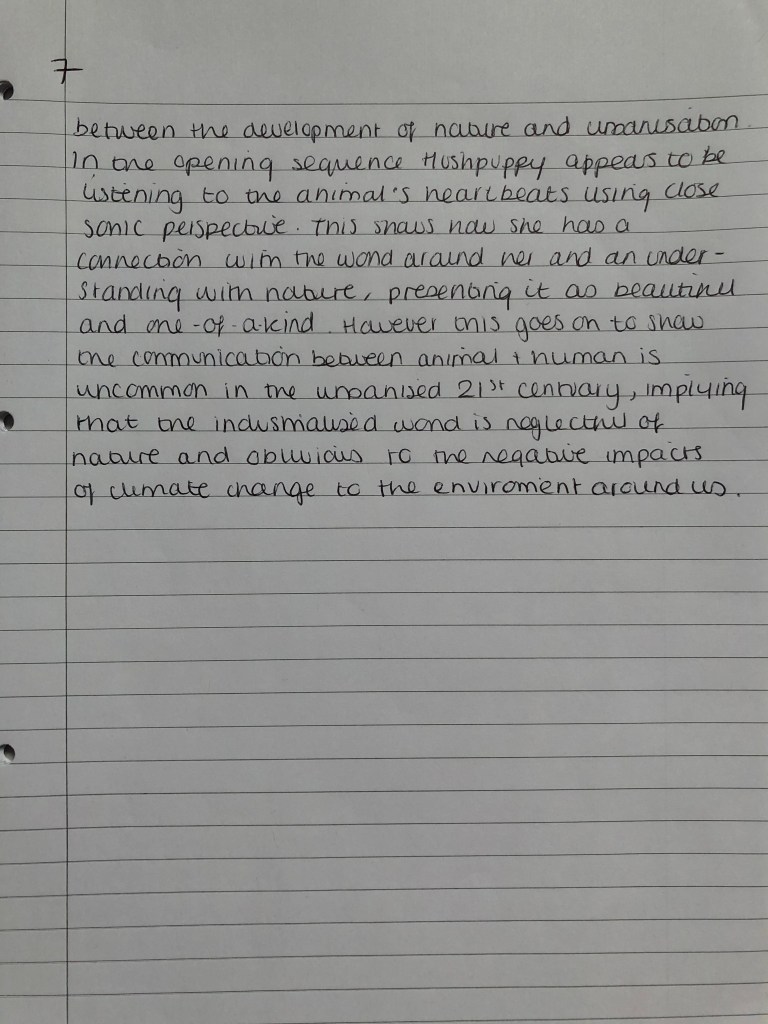 7
between the development of nature and urbanisation.
In the opening sequence Hushpuppy appears to be
listening to the animal's heartbeats using close
sonic perspective. This shows how she has a
connection with the world around her and an under-
standing with nature, presenting it as beautiful
and one-of-a-kind. However this goes on to show
the communication between animal + human is
uncommon in the urbanised 21st centuary, implying
that the industrialised world is neglectful of
nature and oblivious to the negative impacts
of climate change to the enviroment around us.